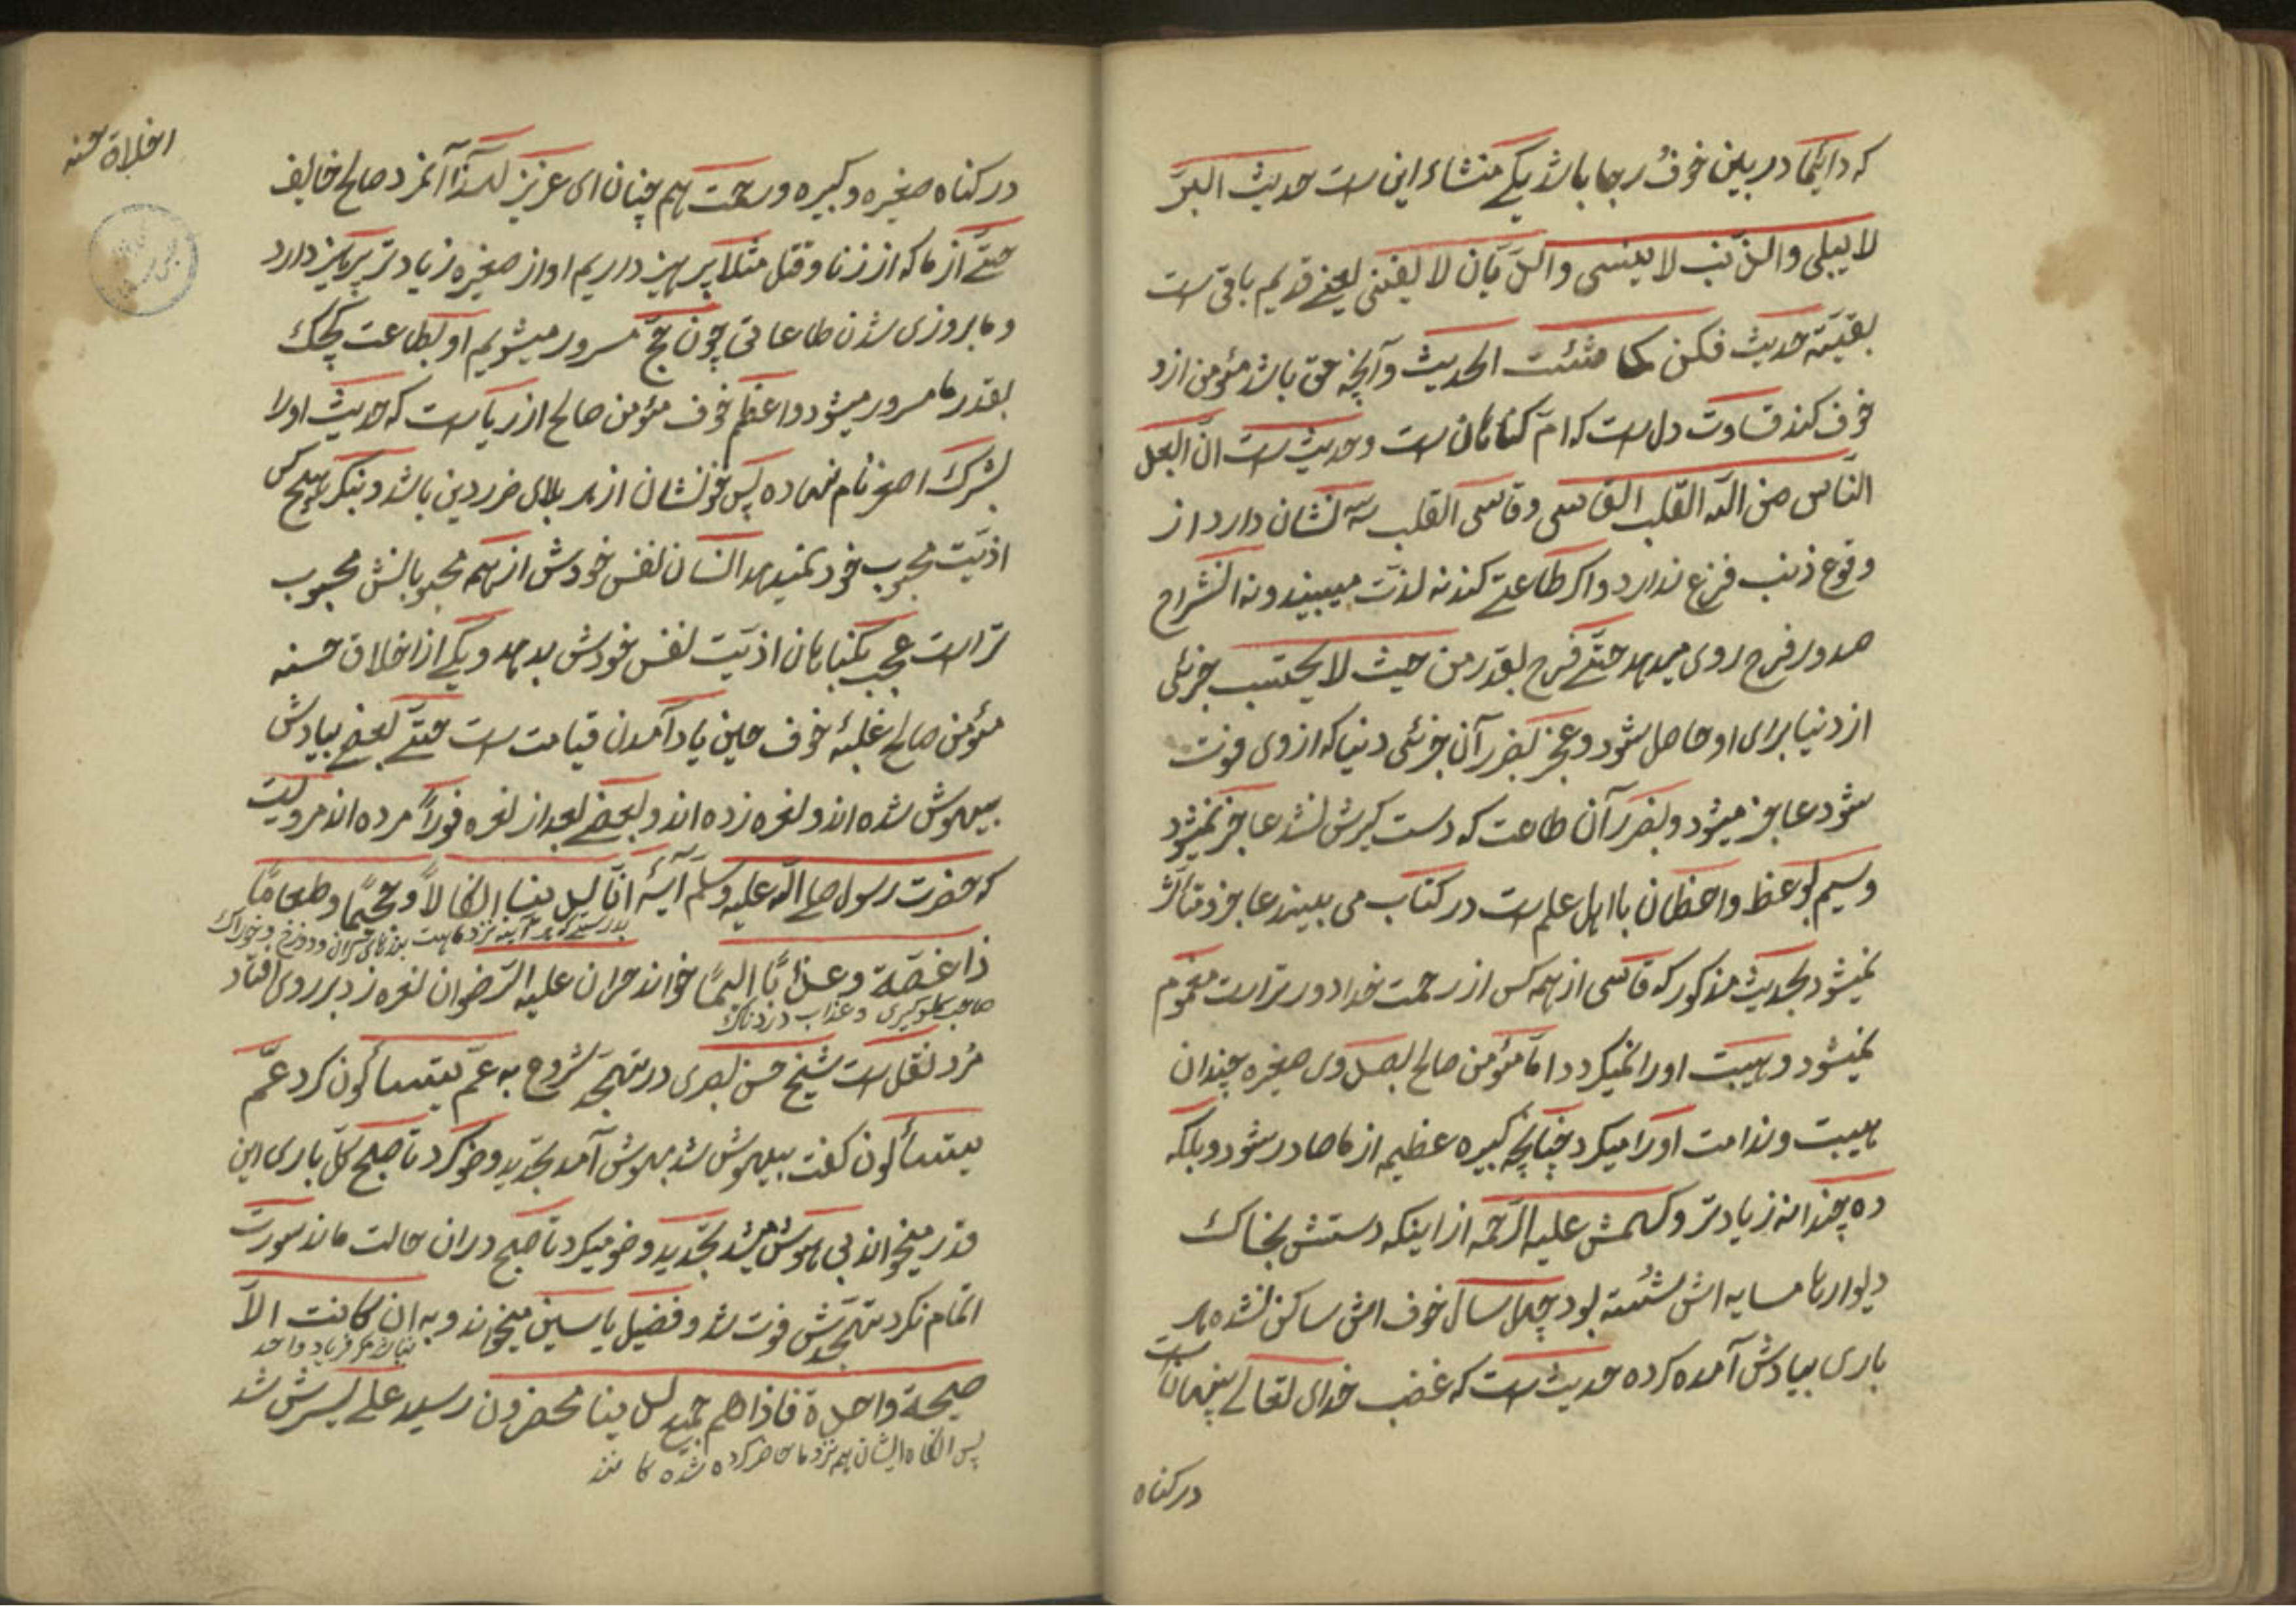 که دایٔما در بین خوف رجا باشد یکی منشاء این است حدیث البرّ
لا یبلی والذّنب لا ینسی والدّیّان لا یفنی یعنی قدیم باقی است
بقیّهٔ حدیث فکن کما شئت الحدیث و آنچه حق باشد مؤمن ازو
خوف کند قساوت دل است که امّ کناهان است و حدیث است انّ ابعد
النّاس من اللّه القلب القاسی و قاسی القلب سه نشان دارد از
وقوع ذنب فزع ندارد و اکر طاعتی کند نه لذت میبیند و نه انشراح
صدور فرح روی میدهد حتّی فرح بقدر من حیث لا یحتسب جزئی
از دنیا برای او حاصل شود و عجز بضرر آن جزئی دنیا که از وی فوت
شود عاجز میشود و بضرر آن طاعت که دست کیرش نشد عاجز نمیشود
و سیم بوعظ واعظان با اهل علم است در کتاب می بیند عاجز و متأثر
نمیشود بحدیث مذکور که قاسی از همه کس از رحمت خدا دور تر است مغموم
نمیشود و هیبت او را نمیکرد و امّا مؤمن صالح بصدوی صغیره چندان
هیبت و ندامت او را میکرد چنانچه کبیره عظیمه از ما صادر شود و بلکه
ده چندانه زیادتر و کهمش علیه الرّحمه از اینکه دستش بخاک
دیوار همسایه اش شسته بود چهل سال خوف اش ساکن نشده هر
باری بیادش آمده کرده حدیث است که غضب خدای تعالی پنهان است
در کناه
اخلاق حسنه
در کناه صغیره و کبیره و رحمت هم چنان ای عزیز لهذا آنمرد صالح خایف
حتّی از ما که از زنا و قتل مثلا پرهیز داریم او از صغیره زیادتر پرهیز دارد
و ما بروزی شدن طاعاتی چون حجّ مسرور میشویم او بطاعت کوچک
بقدر ما مسرور میشود و اعظم خوف مؤمن صالح از ریا است که حدیث او را
بشرک اصغر نام نهاده پس خوفشان از هر بلای ضرر دین باشد و بنکر هیچ کس
اذیّت محبوب خود نمیدهد انسان نفس خودش از همه محبوبانش محبوب
تر است عجب بکناهان اذیّت نفس خودش بدهد و یکی از اخلاق حسنه
مؤمن صالح غلبهٔ خوف حین یاد آمدن قیامت است حتّی بعضی بیادش
بیهوش شده اند و نعره زده اند و بعضی بعد از نعره فوراً مرده اند مرویست
که حضرت رسول صلی اللّه علیه و سلّم آیهٔ انّا لدینا انکالاً و جحیماً و طعاماً
بدرستی که هر آینه نزد ماست بندهای کران و دوزخ و خوراک
ذا غصّة و عذاباً الیماً خواند حران علیه الرّضوان نعره زد بر روی افتاد
صاحب کلوکیری و عذاب دردناک
مُرد نقل است شیخ حسن بصری در تهجّد شروع به عمّ یتساألون کرد عمّ
یتساألون کفت بیهوش شد بهوش آمد تجدید وضو کرد تا صبح کلّ باری این
قدر میخواند بی هوش میشد تجدید وضو میکرد تا صبح در ان حالت ماند سورت
اتمام نکرد تهجّدش فوت شد و فضیل یاسین میخواند و به ان کانت الاّ
نباشد مکر فریاد واحد
صیحة واحدة فاذا هم جمیع لدینا محضرون رسید علی پسرش شد
پس انکاه ایشان همه نزد ما حاضر کرده شده کانند